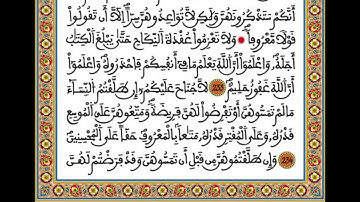 أَنَّكُمْ سَتَذْكُرُونَهُنَّ وَلَٰكِن لَّا تُوَاعِدُوهُنَّ سِرًّا إِلَّا أَن تَقُولُوا
قَوْلًا مَّعْرُوفًا وَلَا تَعْزِمُوا عُقْدَةَ النِّكَاحِ حَتَّىٰ يَبْلُغَ الْكِتَابُ
أَجَلَهُ وَاعْلَمُوا أَنَّ اللَّهَ يَعْلَمُ مَا فِي أَنفُسِكُمْ فَاحْذَرُوهُ وَاعْلَمُوا
أَنَّ اللَّهَ غَفُورٌ حَلِيمٌ 233 لَّا جُنَاحَ عَلَيْكُمْ إِن طَلَّقْتُمُ النِّسَاءَ
مَا لَمْ تَمَسُّوهُنَّ أَوْ تَفْرِضُوا لَهُنَّ فَرِيضَةً وَمَتِّعُوهُنَّ عَلَى الْمُوسِعِ
قَدْرُهُ وَعَلَى الْمُقْتِرِ قَدْرُهُ مَتَاعًا بِالْمَعْرُوفِ حَقًّا عَلَى الْمُحْسِنِينَ
234 وَإِن طَلَّقْتُمُوهُنَّ مِن قَبْلِ أَن تَمَسُّوهُنَّ وَقَدْ فَرَضْتُمْ لَهُنَّ